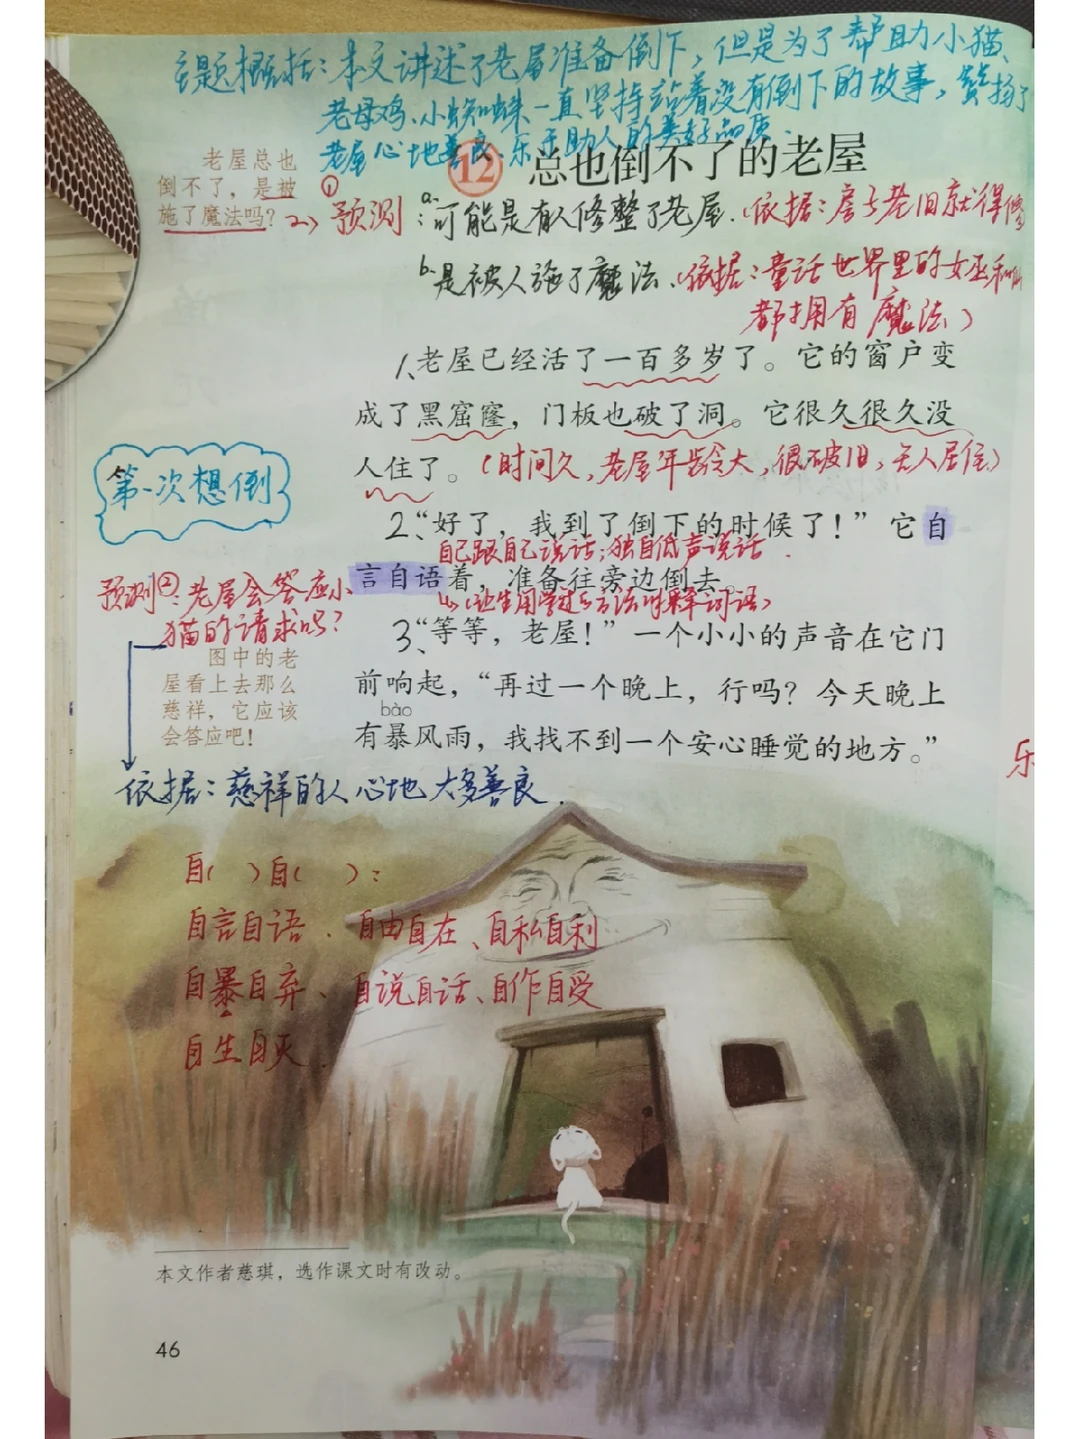 主题概括：本文讲述了老屋准备倒下，但是为了帮助小猫、
老母鸡、小蜘蛛一直坚持站着没有倒下的故事，赞扬了
老屋心地善良、乐于助人的美好品质.
12 总也倒不了的老屋
老屋总也
倒不了，是被
施了魔法吗？
① 预测：a.可能是有人修整了老屋.（依据：房子老旧就得修）
b.是被人施了魔法.（依据：童话世界里的女巫和
都拥有魔法）
1、老屋已经活了一百多岁了。它的窗户变
成了黑窟窿，门板也破了洞。它很久很久没
人住了。（时间久，老屋年龄大，很破旧，无人居住）
第一次想倒
2、“好了，我到了倒下的时候了！”它自
自己跟自己说话；独自低声说话.
言自语着，准备往旁边倒去。
（让生用学过的方法解释词语）
预测②：老屋会答应小
猫的请求吗？
3、“等等，老屋！”一个小小的声音在它门
前响起，“再过一个晚上，行吗？今天晚上
bào
有暴风雨，我找不到一个安心睡觉的地方。”
图中的老
屋看上去那么
慈祥，它应该
会答应吧！
乐
依据：慈祥的人心地大多善良.
自（ ）自（ ）：
自言自语、自由自在、自私自利
自暴自弃、自说自话、自作自受
自生自灭.
本文作者慈琪，选作课文时有改动。
46